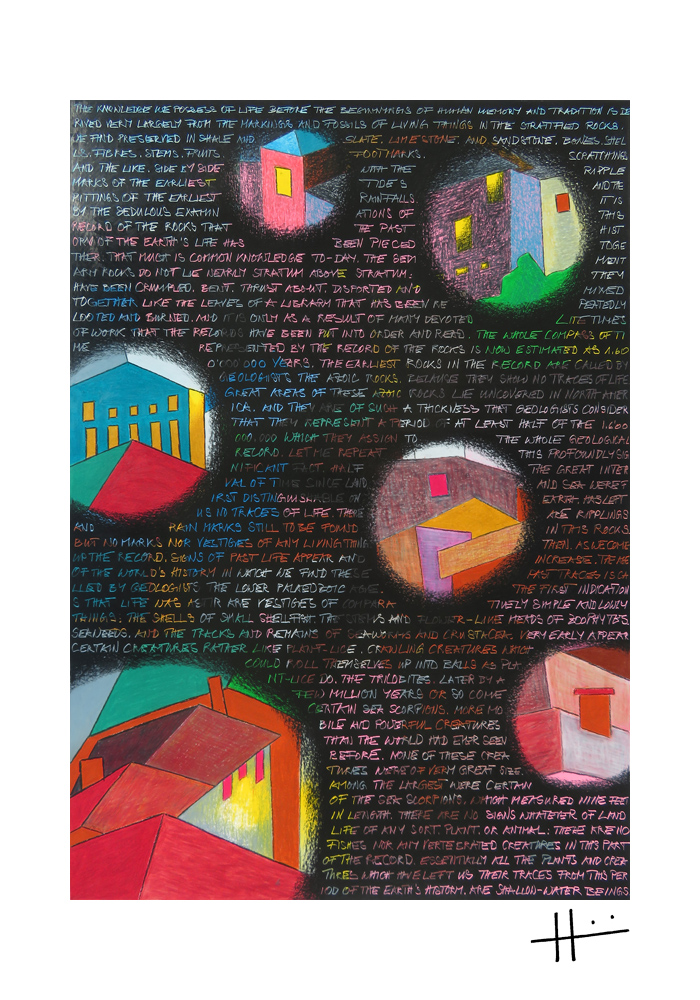 THE KNOWLEDGE WE POSSESS OF LIFE BEFORE THE BEGINNINGS OF HUMAN MEMORY AND TRADITION IS DE
RIVED VERY LARGELY FROM THE MARKINGS AND FOSSILS OF LIVING THINGS IN THE STRATIFIED ROCKS.
WE FIND PRESERVED IN SHALE AND SLATE, LIMESTONE, AND SANDSTONE, BONES, SHEL
LS, FIBRES, STEMS, FRUITS, FOOTMARKS, SCRATCHING
AND THE LIKE, SIDE BY SIDE WITH THE RIPPLE
MARKS OF THE EARLIEST TIDE'S AND THE
PITTINGS OF THE EARLIEST RAINFALLS. IT IS
BY THE SEDULOUS EXAMIN ATIONS OF THIS
RECORD OF THE ROCKS THAT THE PAST HIST
ORY OF THE EARTH'S LIFE HAS BEEN PIECED TOGE
THER. THAT MUCH IS COMMON KNOWLEDGE TO-DAY. THE SEDI MENT
ARY ROCKS DO NOT LIE NEARLY STRATUM ABOVE STRATUM; THEY
HAVE BEEN CRUMPLED, BENT, THRUST ABOUT, DISPORTED AND MIXED
TOGETHER LIKE THE LEAVES OF A LIBRARY THAT HAS BEEN RE PEATEDLY
LOOTED AND BURNED, AND IT IS ONLY AS A RESULT OF MANY DEVOTED LIFETIMES
OF WORK THAT THE RECORDS HAVE BEEN PUT INTO ORDER AND READ. THE WHOLE COMPASS OF TI
ME REPRESENTED BY THE RECORD OF THE ROCKS IS NOW ESTIMATED AS 1.60
0'000'000 YEARS. THE EARLIEST ROCKS IN THE RECORD ARE CALLED BY
GEOLOGISTS THE AZOIC ROCKS, BECAUSE THEY SHOW NO TRACES OF LIFE
GREAT AREAS OF THESE AZOIC ROCKS LIE UNCOVERED IN NORTH AMER
ICA, AND THEY ARE OF SUCH A THICKNESS THAT GEOLOGISTS CONSIDER
THAT THEY REPRESENT A PERIOD OF AT LEAST HALF OF THE 1.600
000.000 WHICH THEY ASSIGN TO THE WHOLE GEOLOGICAL
RECORD. LET ME REPEAT THIS PROFOUNDLY SIG
NIFICANT FACT. HALF THE GREAT INTER
VAL OF TIME SINCE LAND AND SEA WERE F
IRST DISTINGUISHABLE ON EARTH HAS LEFT
US NO TRACES OF LIFE. THERE ARE RIPPLINGS
AND RAIN MARKS STILL TO BE FOUND IN THIS ROCKS
BUT NO MARKS NOR VESTIGES OF ANY LIVING THING. THEN, AS WE COME
UP THE RECORD, SIGNS OF PAST LIFE APPEAR AND INCREASE. THE AGE
OF THE WORLD'S HISTORY IN WHICH WE FIND THESE PAST TRACES IS CA
LLED BY GEOLOGISTS THE LOWER PALAEOZOIC AGE. THE FIRST INDICATION
S THAT LIFE WAS ASTIR ARE VESTIGES OF COMPARA TIVELY SIMPLE AND LOWLY
THINGS: THE SHELLS OF SMALL SHELLFISH, THE STEMS AND FLOWER-LIKE HEADS OF ZOOPHYTES,
SEAWEEDS, AND THE TRACKS AND REMAINS OF SEAWORMS AND CRUSTACEA. VERY EARLY APPEAR
CERTAIN CREATURES RATHER LIKE PLANT-LICE, CRAWLING CREATURES WHICH
COULD ROLL THEMSELVES UP INTO BALLS AS PLA
NT-LICE DO, THE TRILOBITES. LATER BY A
FEW MILLION YEARS OR SO COME
CERTAIN SEA SCORPIONS, MORE MO
BILE AND POWERFUL CREATURES
THAN THE WORLD HAD EVER SEEN
BEFORE. NONE OF THESE CREA
TURES WERE OF VERY GREAT SIZE.
AMONG THE LARGEST WERE CERTAIN
OF THE SEA SCORPIONS, WHICH MEASURED NINE FEET
IN LENGTH. THERE ARE NO SIGNS WHATEVER OF LAND
LIFE OF ANY SORT, PLANT, OR ANIMAL; THERE ARE NO
FISHES NOR ANY VERTEBRATED CREATURES IN THIS PART
OF THE RECORD. ESSENTIALLY ALL THE PLANTS AND CREA
TURES WHICH HAVE LEFT US THEIR TRACES FROM THIS PER
IOD OF THE EARTH'S HISTORY, ARE SHALLOW-WATER BEINGS